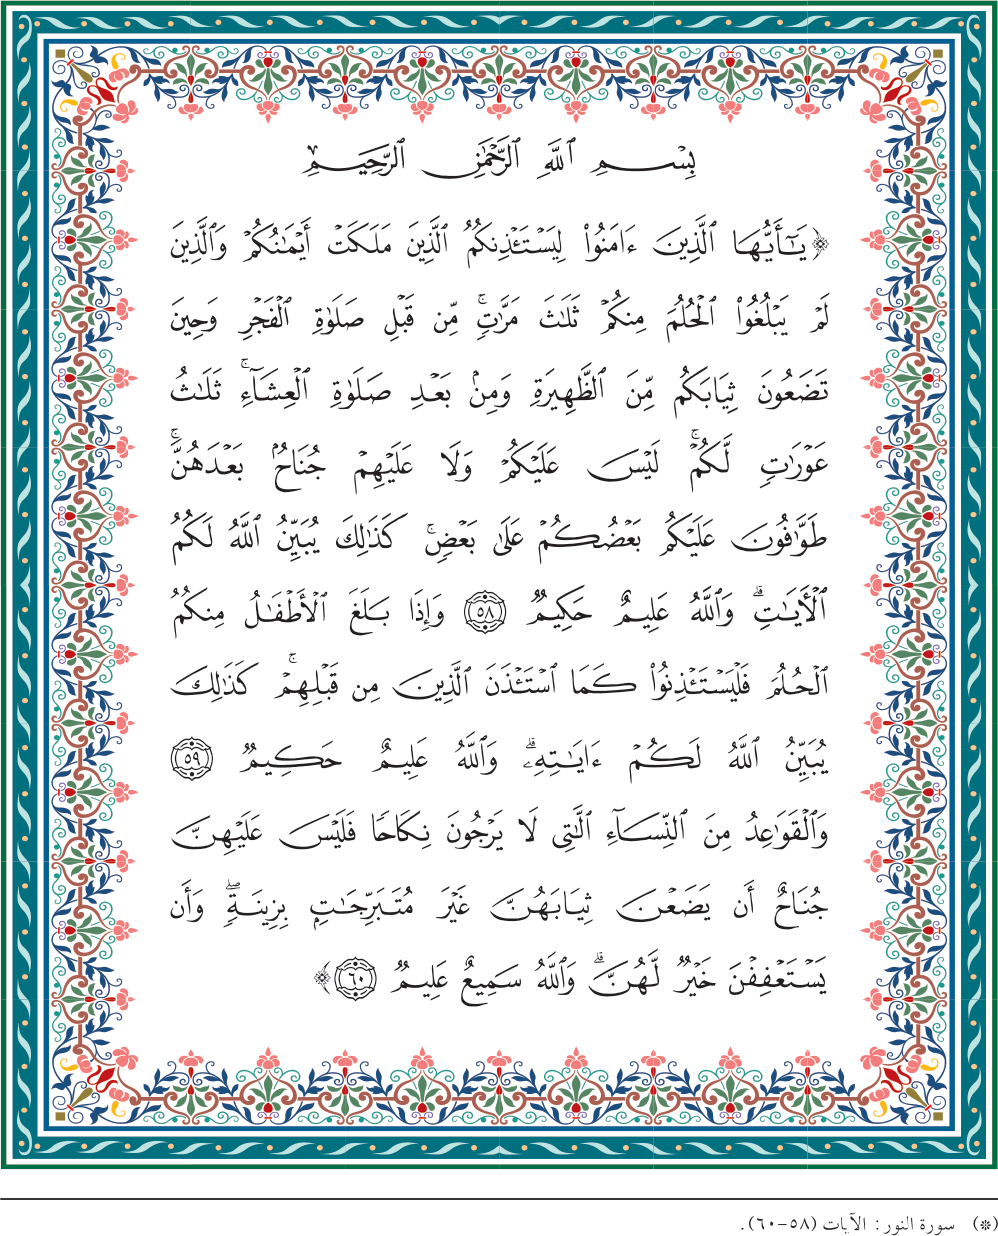 بِسْمِ ٱللَّهِ ٱلرَّحْمَٰنِ ٱلرَّحِيمِ
﴿يَـٰٓأَيُّهَا ٱلَّذِينَ ءَامَنُوا۟ لِيَسْتَـْٔذِنكُمُ ٱلَّذِينَ مَلَكَتْ أَيْمَـٰنُكُمْ وَٱلَّذِينَ
لَمْ يَبْلُغُوا۟ ٱلْحُلُمَ مِنكُمْ ثَلَـٰثَ مَرَّٰتٍۚ مِّن قَبْلِ صَلَوٰةِ ٱلْفَجْرِ وَحِينَ
تَضَعُونَ ثِيَابَكُم مِّنَ ٱلظَّهِيرَةِ وَمِنۢ بَعْدِ صَلَوٰةِ ٱلْعِشَآءِۚ ثَلَـٰثُ
عَوْرَٰتٍ لَّكُمْۚ لَيْسَ عَلَيْكُمْ وَلَا عَلَيْهِمْ جُنَاحٌۢ بَعْدَهُنَّۚ
طَوَّٰفُونَ عَلَيْكُم بَعْضُكُمْ عَلَىٰ بَعْضٍۚ كَذَٰلِكَ يُبَيِّنُ ٱللَّهُ لَكُمُ
ٱلْـَٔايَـٰتِۗ وَٱللَّهُ عَلِيمٌ حَكِيمٌ ٥٨ وَإِذَا بَلَغَ ٱلْأَطْفَـٰلُ مِنكُمُ
ٱلْحُلُمَ فَلْيَسْتَـْٔذِنُوا۟ كَمَا ٱسْتَـْٔذَنَ ٱلَّذِينَ مِن قَبْلِهِمْۚ كَذَٰلِكَ
يُبَيِّنُ ٱللَّهُ لَكُمْ ءَايَـٰتِهِۦۗ وَٱللَّهُ عَلِيمٌ حَكِيمٌ ٥٩
وَٱلْقَوَٰعِدُ مِنَ ٱلنِّسَآءِ ٱلَّـٰتِى لَا يَرْجُونَ نِكَاحًا فَلَيْسَ عَلَيْهِنَّ
جُنَاحٌ أَن يَضَعْنَ ثِيَابَهُنَّ غَيْرَ مُتَبَرِّجَـٰتٍۭ بِزِينَةٍۖ وَأَن
يَسْتَعْفِفْنَ خَيْرٌ لَّهُنَّۗ وَٱللَّهُ سَمِيعٌ عَلِيمٌ ٦٠﴾
(*) سورة النور: الآيات (٥٨-٦٠).